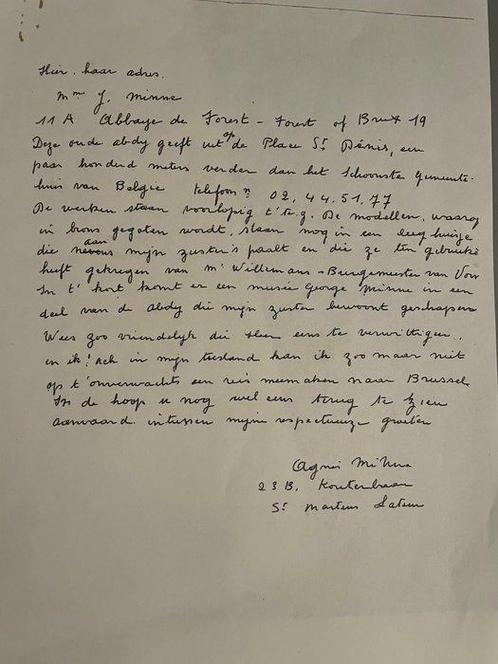 Hier, haar adres.
Mme J. Minne
11 A Abbaye de Forest - Forest of Brux 19
Deze oude abdy geeft uit op de Place St Dénis, een
paar honderd meters verder dan het Schoonste Gemeente-
huis van Belgie telefoon n° 02.44.51.77
De werken staan voorlopig t'. De modellen, waarop
in brons gegoten wordt, staan nog in een leeg huizje
die nevens aan mijn zuster's paalt en die ze ten gebruike
heeft gekregen van mr Willemans - Burgemeester van Vorst
In t' kort komt er een musée George Minne in een
deel van de abdy die mijn zuster bewoont geschapen
Wees zoo vriendelyk die Heer eens te verwittigen,
en ik! ach in mijn toestand kan ik zoo maar niet
op t'onverwachts een reis meemaken naar Brussel
In de hoop u nog wel eens terug te zien
aanvaard intussen mijne respectueuze groeten
Agnes Minne
23B, Koutenbaan
St Martens Latem